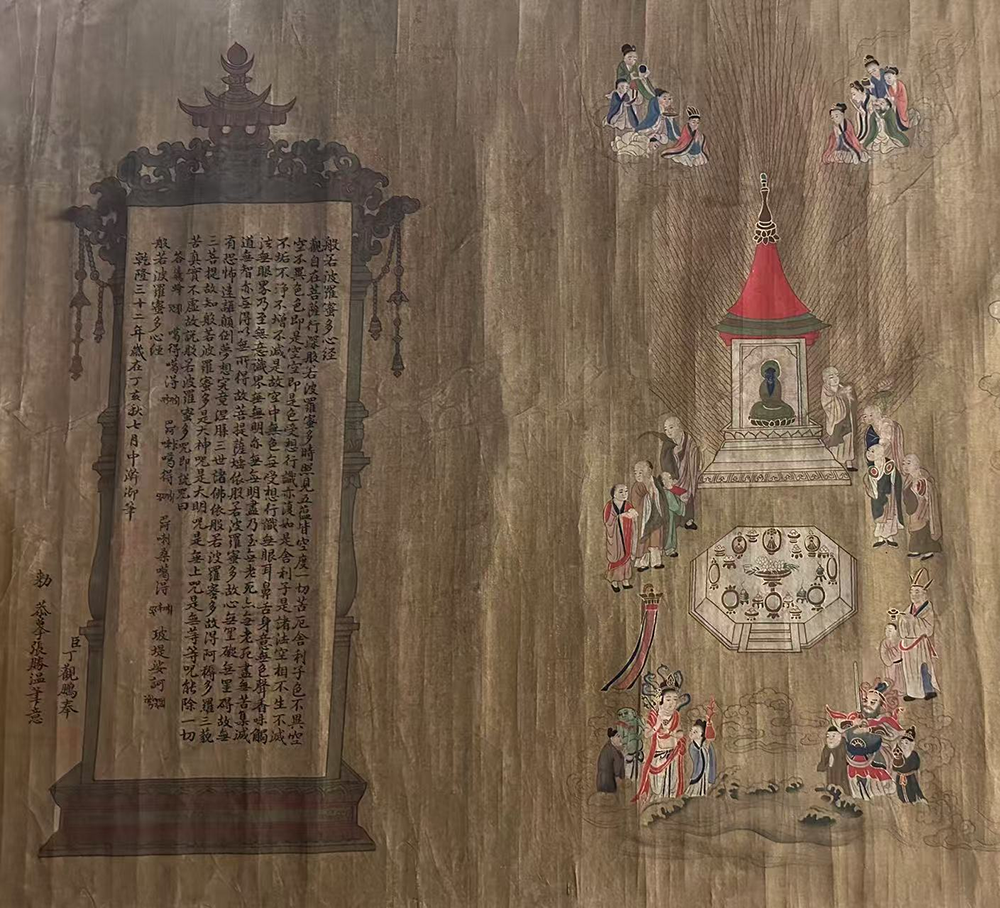 般若波羅蜜多心経
觀自在菩薩行深般若波羅蜜多時照見五蘊皆空度一切苦厄舍利子色不異空
空不異色色即是空空即是色受想行識亦復如是舍利子是諸法空相不生不滅
不垢不淨不增不減是故空中無色無受想行識無眼耳鼻舌身意無色聲香味觸
法無眼界乃至無意識界無無明亦無無明盡乃至無老死亦無老死盡無苦集滅
道無智亦無得以無所得故菩提薩埵依般若波羅蜜多故心無罣礙無罣碍故無
有恐怖遠離顛倒夢想究竟涅槃三世諸佛依般若波羅蜜多故得阿耨多羅三藐
三菩提故知般若波羅蜜多是大神咒是大明咒是無上咒是無等等咒能除一切
苦真實不虛故說般若波羅蜜多咒即說咒曰
噶得噶得 噶得 桑噶得 玻堤娑訶
般若波羅蜜多心経
乾隆三十二年歲在丁亥秋七月中澣御筆
臣丁觀鵬奉
勅 恭摹張勝溫筆意